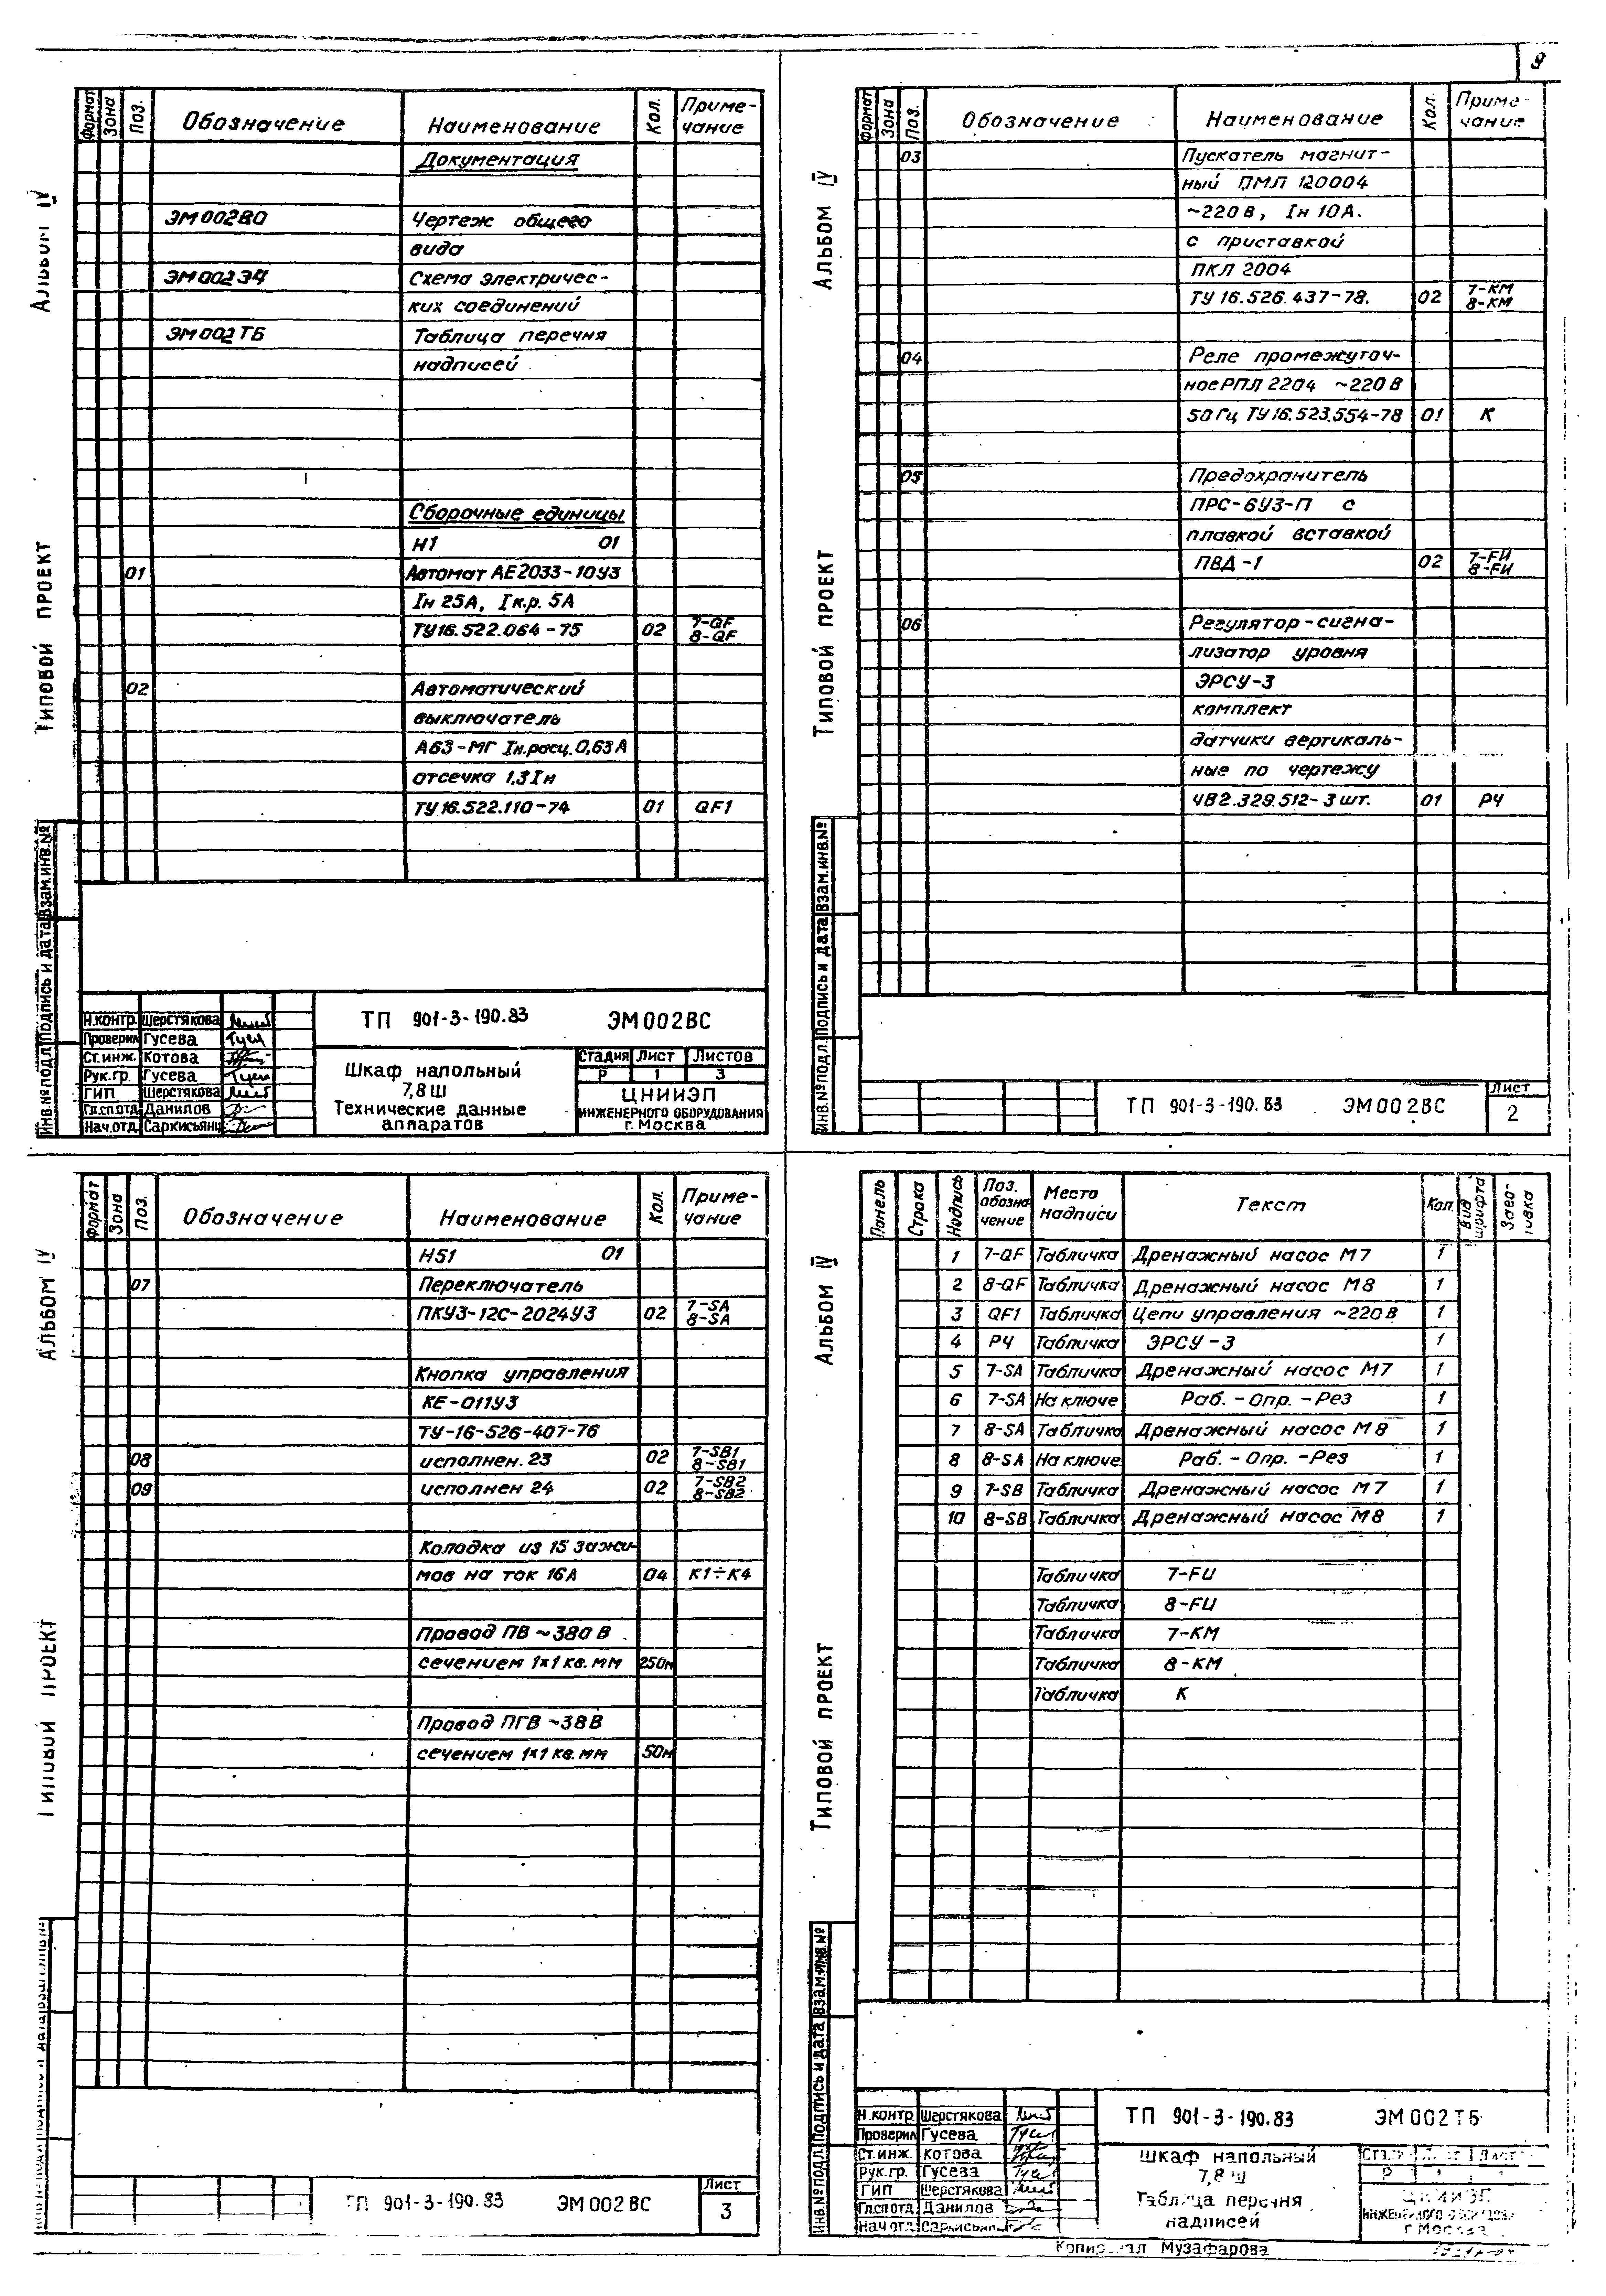 9
Альбом IV
Типовой проект
Формат Зона Поз. Обозначение Наименование Кол. Приме-
чание
Документация
ЭМ002ВО Чертеж общего
вида
ЭМ002Э4 Схема электричес-
ких соединений
ЭМ002ТБ Таблица перечня
надписей
Сборочные единицы
Н1 01
01 Автомат АЕ2033-10У3
Iн 25А, Iк.р. 5А
ТУ16.522.064-75 02 7-QF
8-QF
02 Автоматический
выключатель
А63-МГ Iн.расц. 0,63А
отсечка 1,3Iн
ТУ16.522.110-74 01 QF1
Инв.№подл. Подпись и дата Взам.инв.№
Н.контр. Шерстякова
Проверил Гусева
Ст.инж. Котова
Рук.гр. Гусева
ГИП Шерстякова
Гл.сп.отд. Данилов
Нач.отд. Саркисьянц
ТП 901-3-190.83 ЭМ002ВС
Шкаф напольный
7,8Ш
Технические данные
аппаратов
Стадия Лист Листов
Р 1 3
ЦНИИЭП
инженерного оборудования
г. Москва
Альбом IV
Типовой проект
Формат Зона Поз. Обозначение Наименование Кол. Приме-
чание
03 Пускатель магнит-
ный ПМЛ 120004
~220В, Iн 10А.
с приставкой
ПКЛ 2004
ТУ 16.526.437-78. 02 7-КМ
8-КМ
04 Реле промежуточ-
ное РПЛ 2204 ~220В
50Гц ТУ16.523.554-78 01 К
05 Предохранитель
ПРС-6У3-П с
плавкой вставкой
ПВД-1 02 7-FИ
8-FИ
06 Регулятор-сигна-
лизатор уровня
ЭРСУ-3
комплект
датчики вертикаль-
ные по чертежу
ЧВ2.329.512-3шт. 01 РЧ
Инв.№подл. Подпись и дата Взам.инв.№
ТП 901-3-190.83 ЭМ002ВС
Лист
2
Альбом IV
Типовой проект
Формат Зона Поз. Обозначение Наименование Кол. Приме-
чание
Н51 01
07 Переключатель
ПКУ3-12С-2024У3 02 7-SA
8-SA
Кнопка управления
КЕ-011У3
ТУ-16-526-407-76
08 исполнен. 23 02 7-SB1
8-SB1
09 исполнен 24 02 7-SB2
8-SB2
Колодка из 15 зажи-
мов на ток 16А 04 К1÷К4
Провод ПВ ~380В
сечением 1×1 кв.мм 250м
Провод ПГВ ~38В
сечением 1×1 кв.мм 50м
ТП 901-3-190.83 ЭМ002ВС
Лист
3
Альбом IV
Типовой проект
Панель Строка Надпись Поз.
обозна-
чение Место
надписи Текст Кол. Вид
шрифта
1 7-QF Табличка Дренажный насос М7 1
2 8-QF Табличка Дренажный насос М8 1
3 QF1 Табличка Цепи управления ~220В 1
4 РЧ Табличка ЭРСУ-3 1
5 7-SA Табличка Дренажный насос М7 1
6 7-SA На ключе Раб.-Опр.-Рез 1
7 8-SA Табличка Дренажный насос М8 1
8 8-SA На ключе Раб.-Опр.-Рез 1
9 7-SB Табличка Дренажный насос М7 1
10 8-SB Табличка Дренажный насос М8 1
Табличка 7-FU
Табличка 8-FU
Табличка 7-КМ
Табличка 8-КМ
Табличка К
Инв.№подл. Подпись и дата Взам.инв.№
Н.контр. Шерстякова
Проверил Гусева
Ст.инж. Котова
Рук.гр. Гусева
ГИП Шерстякова
Гл.сп.отд Данилов
Нач.отд.
ТП 901-3-190.83 ЭМ002ТБ
Шкаф напольный
7,8Ш
Таблица перечня
надписей
Р
ЦНИИЭП
г. Москва
Музафарова